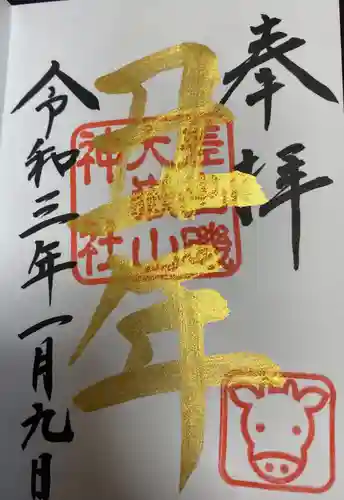 奉拝
丑年
差出磯
大嶽山
神社
令和三年一月九日